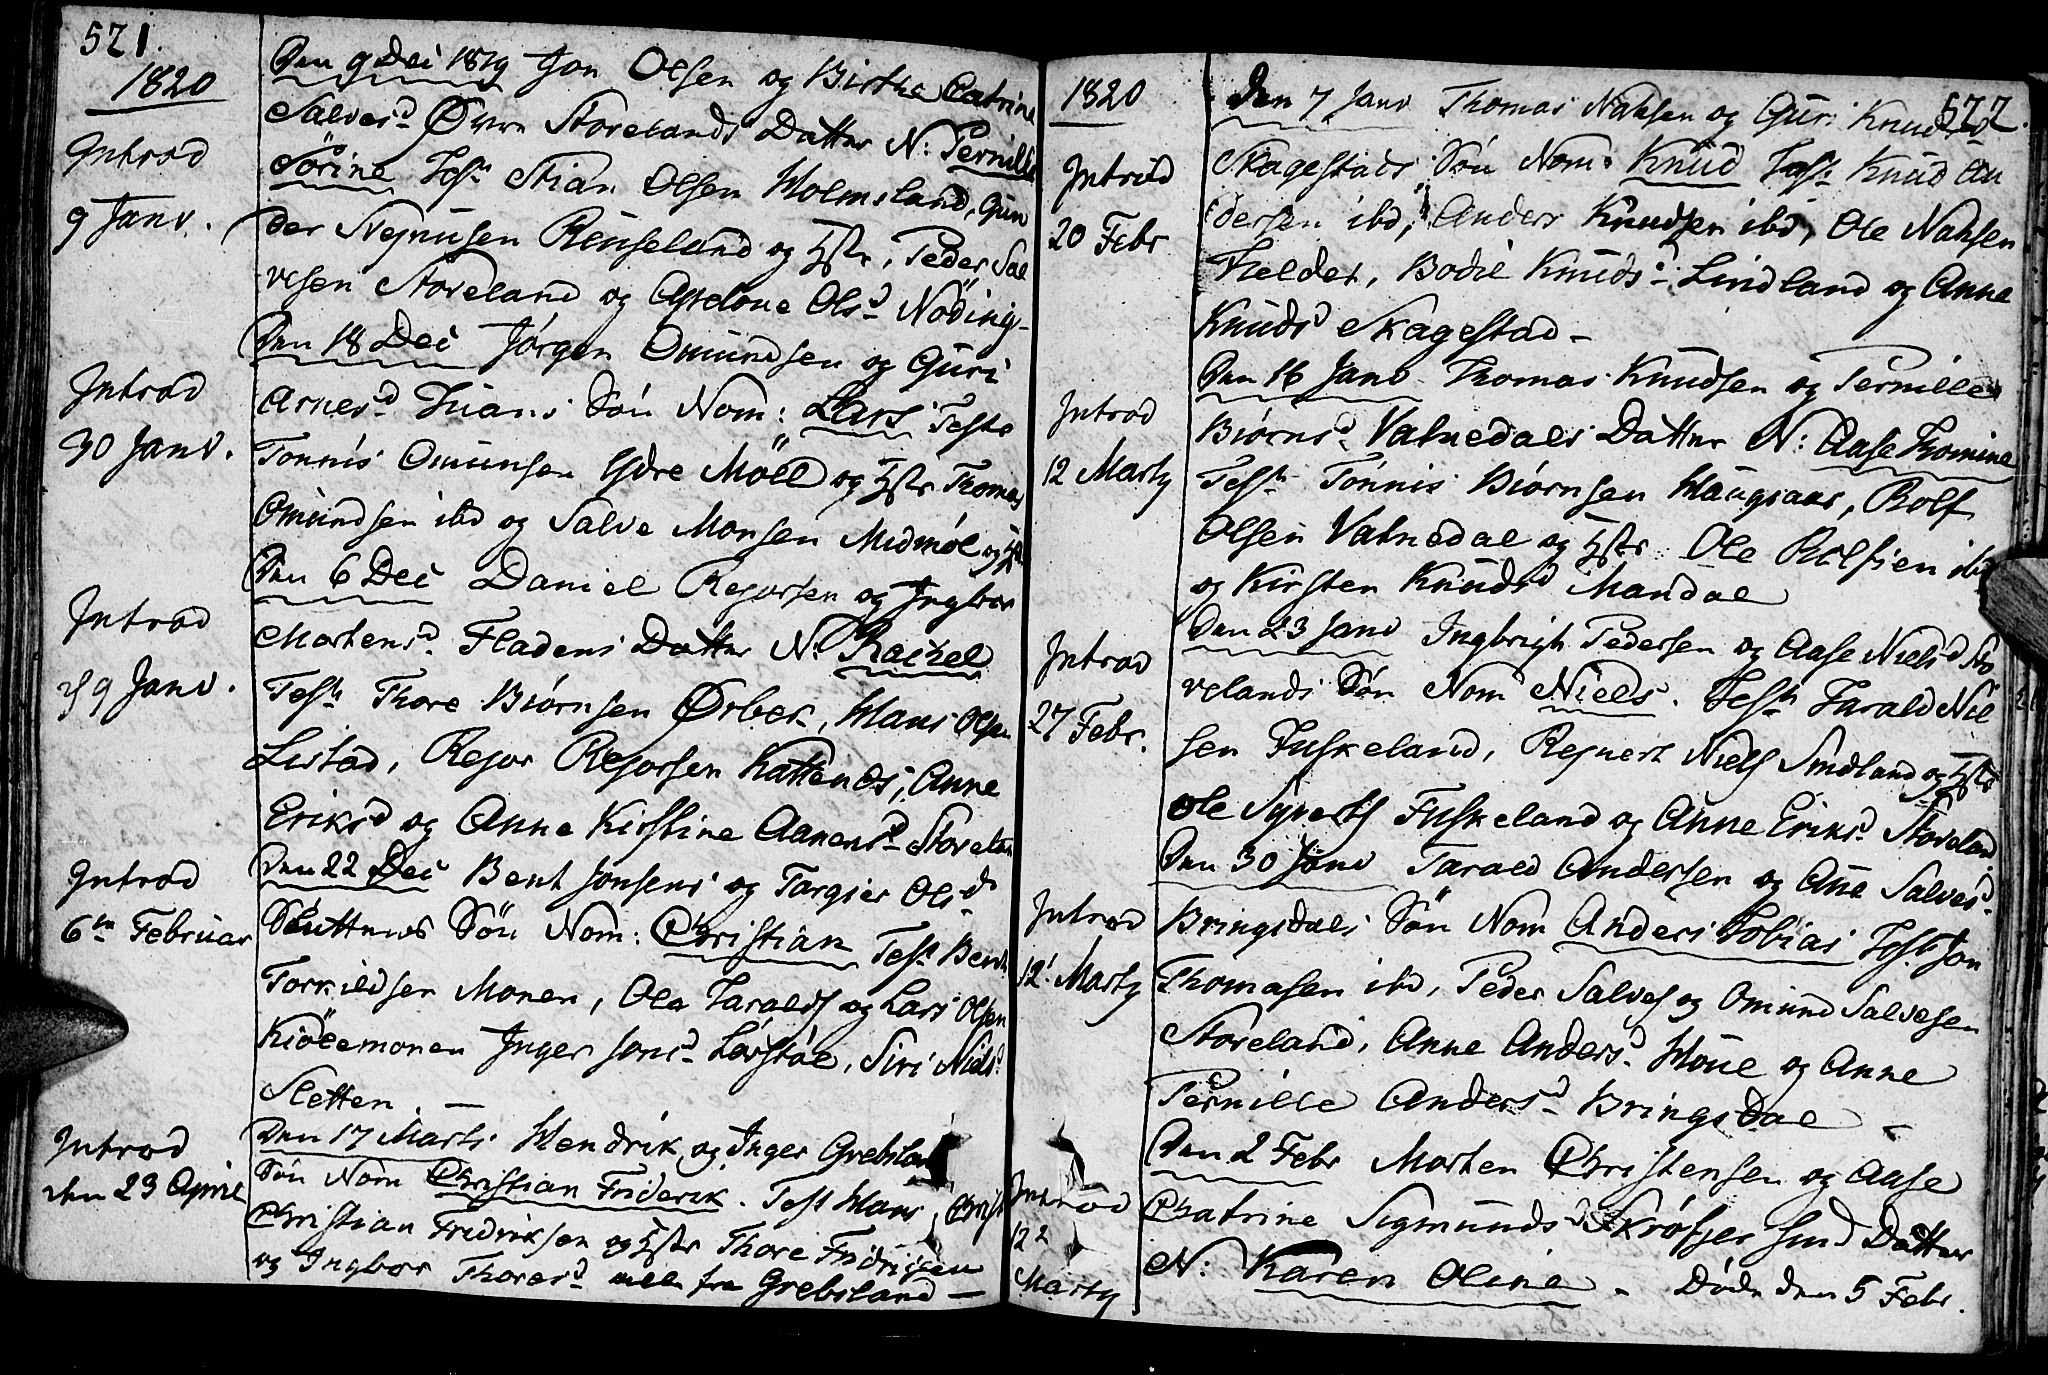 571.
1820
Introd
9 Janv.
Den 9 Dec 1819 Jon Olsen og Birthe Catrine
Salvesd Øvre Storelands Datter N: Pernille
Sörine Test Stian Olsen Holmsland, Gun
der Nejrusen Reuseland og Hstr, Peder Sal
vesen Storeland og Apelone Olsd Nöding-
Introd
30 Janv.
Den 18 Dec Jörgen Omundsen og Guri
Arnesd Tuans Sön Nom: Lars Teste
Tonnis Omunsen Ydre Möll og Hstr Thomas
Omundsen ibd og Salve Monsen Midmöl og Hstr
Introd
29 Janv.
Den 6 Dec Daniel Rejorsen og Ingbor
Mortensd Fladens Datter N: Rachel
Test Thore Biørnsen Ørber, Hans Olsen
Listad, Rejor Rejorsen Hattends, Anne
Eriksd og Anne Kirstine Aanensd Storelan
Introd
6te Februar
Den 22 Dec Bent Jonsens og Targier Olsd
Sluttens Sön Nom: Christian Test Bent
Torkildsen Monen, Ole Taralds og Lars Olsen
Kiölemonen Inger Jonsd Lörstöl, Siri Nielsd
Sletten. —
Introd
den 23 April
Den 17 Marts Hendrik og Inger Grebsland
Sön Nom Christian Friderik. Test Hans Christ
Christian Fridriksen og Hstr Thore Fridrichsen
og Ingbor Thoresd alle fra Grebsland —
577.
1820
Introd
20 Febr
Den 7 Janv Thomas Nahsen og Guri Knudsd
Skagestads Sön Nom: Knud Test: Knud An
dersen ibd, Anders Knudsen ibd, Ole Nahsen
Fielder, Bodil Knudsd Lindland og Anne
Knudsd Skagestad —
Introd
12 Marty
Den 16 Janv Thomas Knudsen og Pernille
Biørnsd Vatnedals Datter N: Aase Thomine
Test Tönnis Biørnsen Haugaas, Rolf
Olsen Vatnedal og Hstr Ole Rolfsen ibd
og Kirsten Knudsd Mandal
Introd
27 Febr.
Den 23 Janv Ingbrigt Pedersen og Aase Nielsd Sto
relands Sön Nom Niels. Test Tarald Niel
sen Fuskeland, Rejnert Niels Smedland og Hstr
Ole Syverts Fuskeland og Anne Eriksd Storeland
Introd
12 Marty
Den 30 Janv Tarald Andersen og Ane Salvesd
Bringsdals Sön Nom Anders Tobias Test Jon
Thomasen ibd, Peder Salves og Omund Salvesen
Storeland, Anne Andersd Houe og Anne
Pernille Andersd Bringsdal —
Introd
12
Marty
Den 2 Febr Morten Christensen og Aase
Chatrine Sigmundsd Skröfjersund Datter
N: Karen Oline — Döde den 5 Febr.